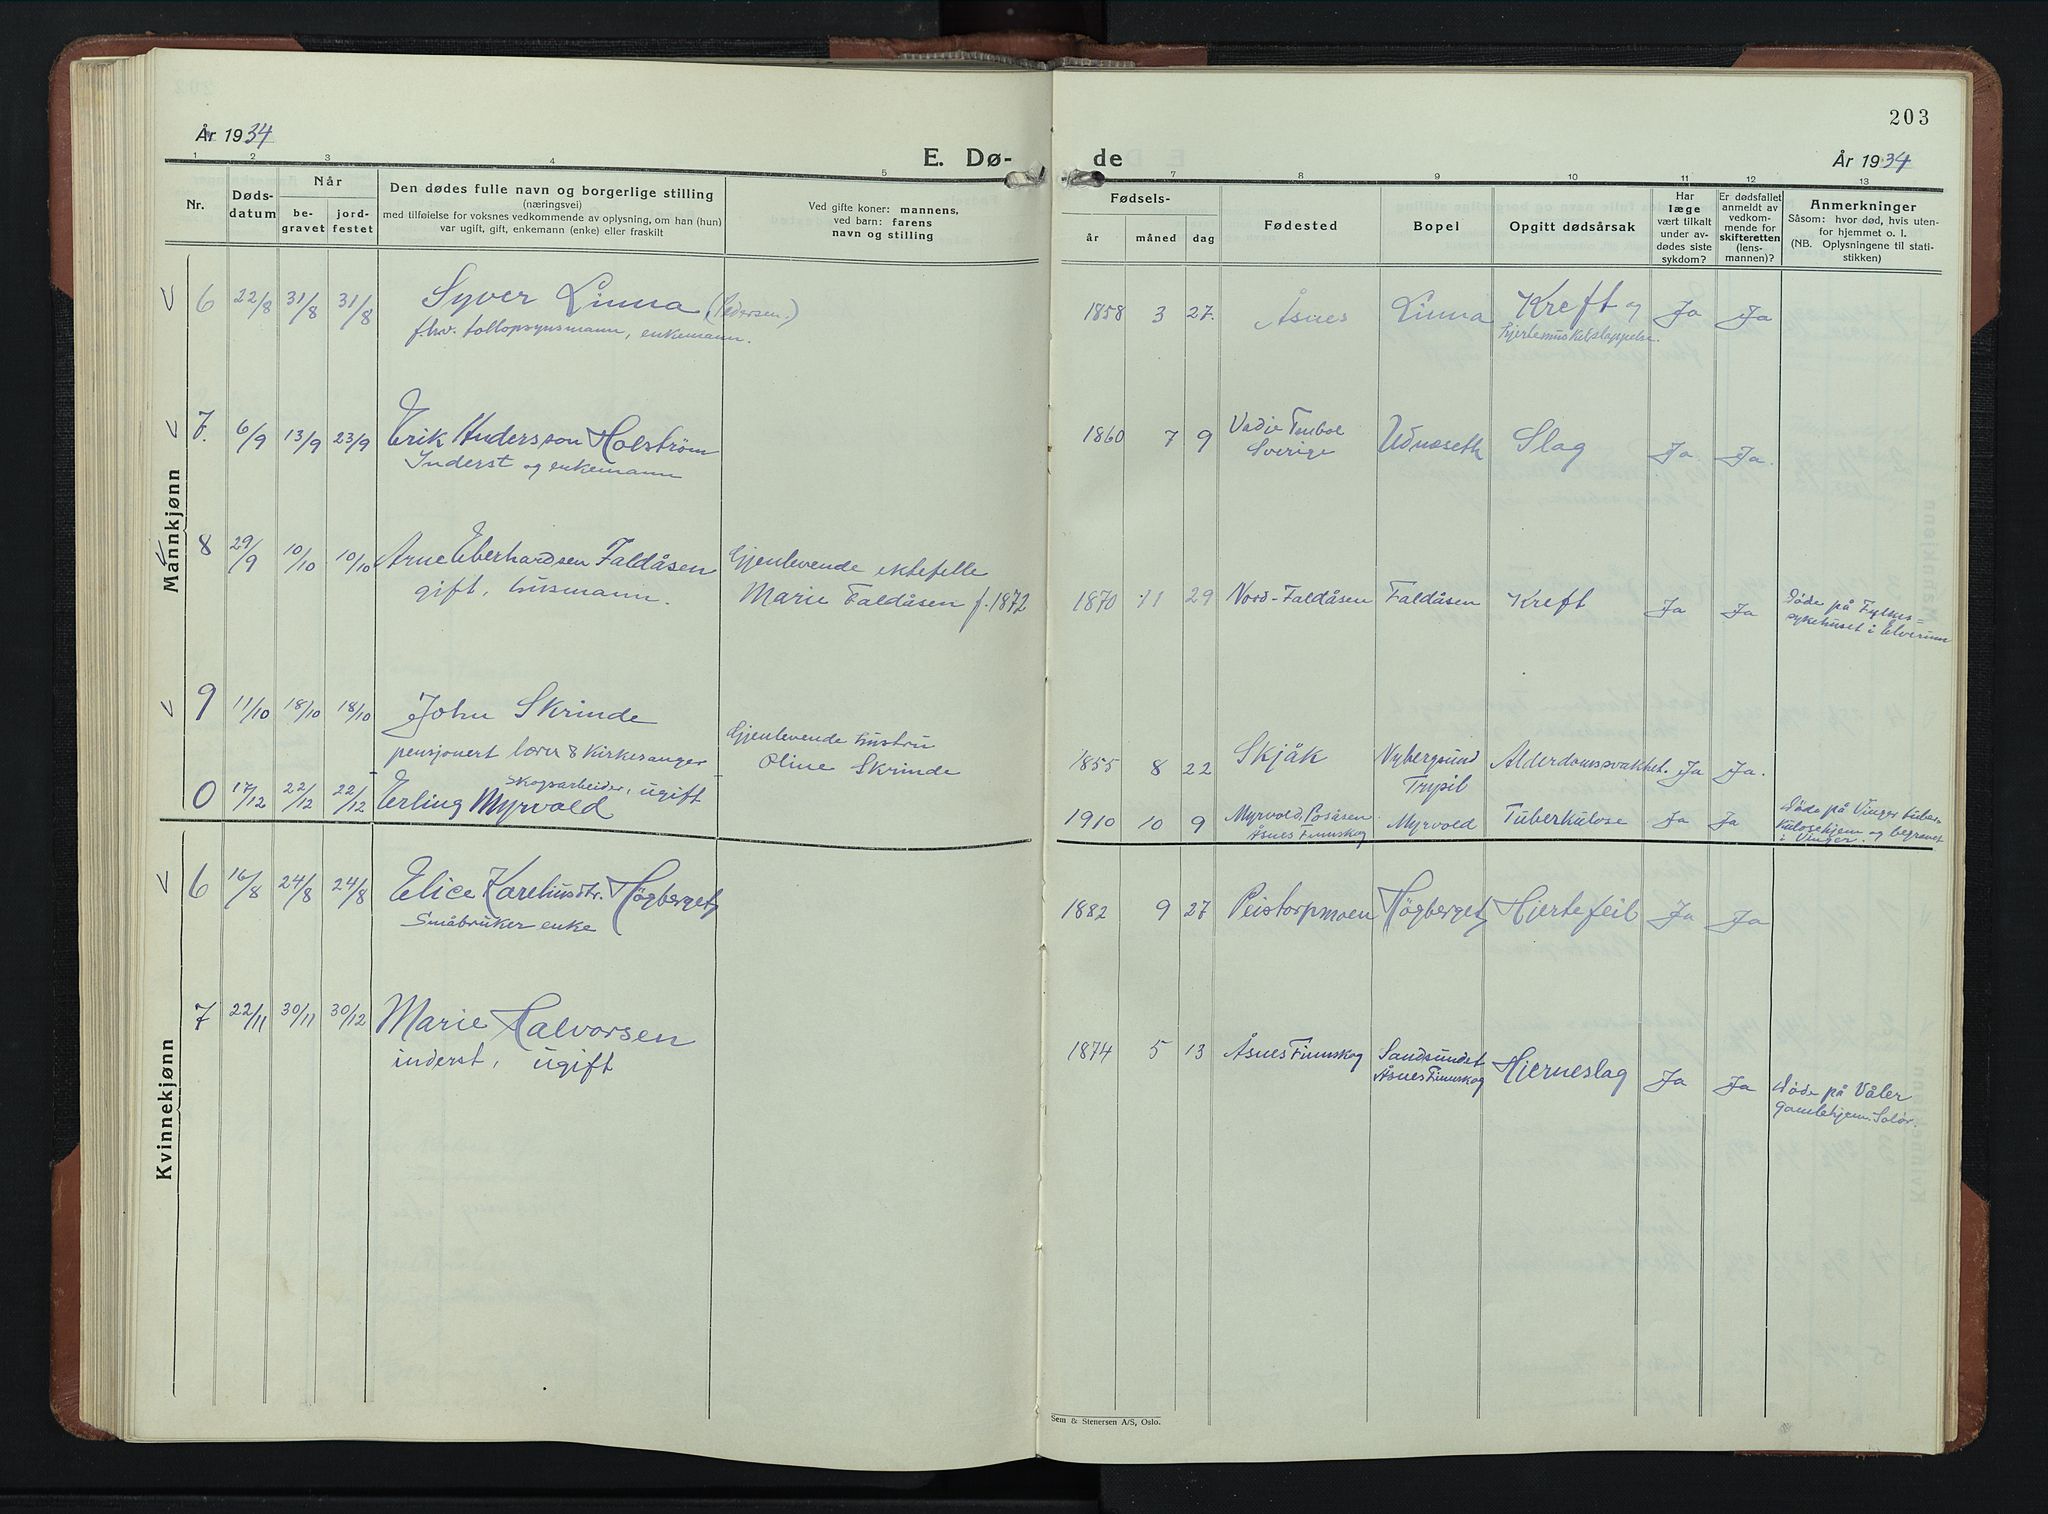 203
År 1934
E. Dø-
de
År 1934
1 2 3 4 5 7 8 9 10 11 12 13
Nr.
Døds-
datum
Når
be-
gravet
jord-
festet
Den dødes fulle navn og borgerlige stilling
(næringsvei)
med tilføielse for voksnes vedkommende av oplysning, om han (hun)
var ugift, gift, enkemann (enke) eller fraskilt
Ved gifte koner: mannens,
ved barn: farens
navn og stilling
Fødsels-
år måned dag
Fødested
Bopel
Opgitt dødsårsak
Har
læge
vært tilkalt
under av-
dødes siste
sykdom?
Er dødsfallet
anmeldt av
vedkom-
mende for
skifteretten
(lens-
mannen)?
Anmerkninger
Såsom: hvor død, hvis uten-
for hjemmet o. l.
(NB. Oplysningene til stati-
stikken)
Mannkjønn
6 22/8 31/8 31/8 Syver Linna (Pedersen.) 1858 3 27. Åsnes Linna Kreft og Ja Ja
fhv. tollopsynsmann, enkemann. hjertemuskelslappelse.
7. 6/9 13/9 23/9 Erik Andersson Holström 1860 7 9 Sverige Udnæseth Slag Ja. Ja.
Inderst og enkemann
8 29/9 10/10 10/10 Arne Eberhardsen Faldåsen Gjenlevende ektefelle
gift, husmann. Marie Faldåsen f. 1872 1870 11 29 Nord-Faldåsen Faldåsen Kreft Ja Ja Døde på Fylkes-
sykehuset i Elverum
9 11/10 18/10 18/10 John Skrinde
pensjonert lærer & kirkesanger Gjenlevende hustru
Oline Skrinde 1855 8 22 Skjåk Nybergsund Alderdomssvakhet. Ja Ja.
Trysil
0 17/12 22/12 22/12 Erling Myrvold Skogsarbeider, ugift 1910 10 9 Myrvold, Posåsen Myrvold Tuberkulose Ja Ja Døde på Vinger tuber-
Åsnes Finnskog kulosehjem og begravet
i Vinger.
Kvinnekjønn
6 16/8 24/8 24/8 Elice Karelius dtr. Høgberget 1882 9 27 Peistorpmoen Høgberget Hjertefeil Ja Ja
Småbruker enke
7 22/11 30/11 30/12 Marie Halvorsen
inderst, ugift 1874 5 13 Åsnes Finnskog Sandsundet Hjerneslag Ja Ja Døde på Våler
Åsnes Finnskog gamlehjem. Solør.
Sem & Stenersen A/S, Oslo.